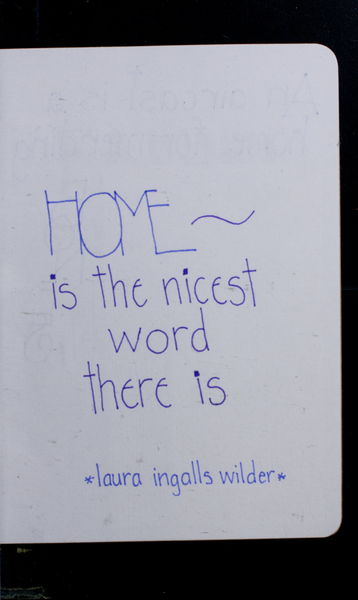 HOME ~
is the nicest
word
there is
*laura ingalls wilder*